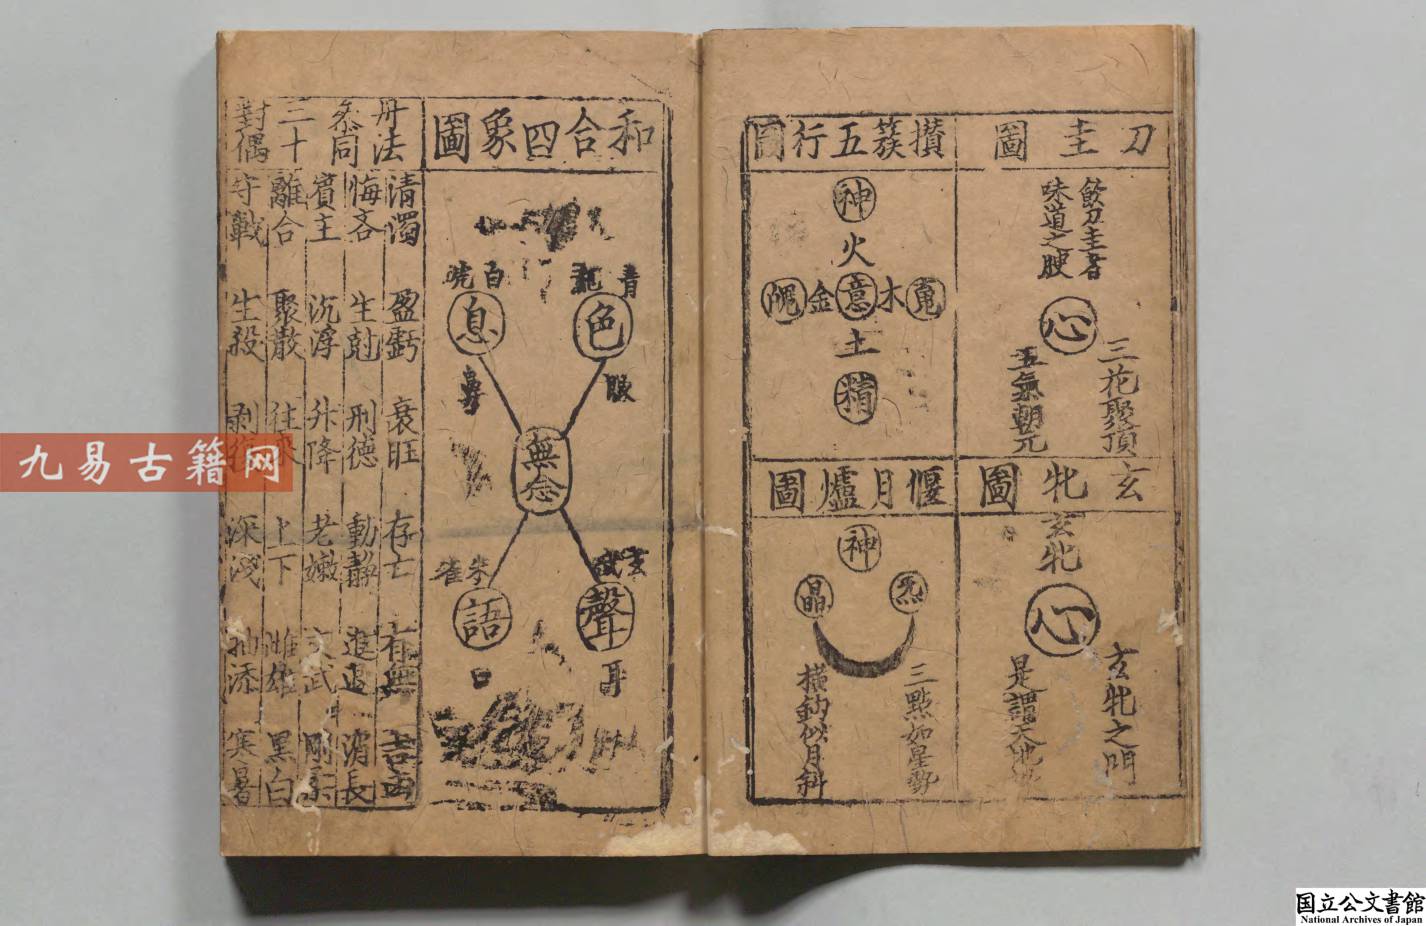 刀圭圖
飲刀圭者
味道之腴
心
三花聚頂
五氣朝元
攅簇五行圖
神
火
魂木意金魄
土
精
玄牝圖
玄牝
心
玄牝之門
是謂天地
偃月爐圖
神
炁
晶
三點如星勢
橫鈎似月斜
和合四象圖
青龍
白虎
色
息
眼
鼻
無念
玄武
朱雀
聲
語
耳
口
丹法
叅同
三十
對偶
清濁 盈虧 衰旺 存亡 有無 吉凶
悔吝 生尅 刑德 動靜 進退 消長
賓主 沉浮 升降 老嫩 文武 剛柔
離合 聚散 往來 上下 雌雄 黑白
守戰 生殺 剥復 深淺 抽添 寒暑
九易古籍网
国立公文書館
National Archives of Japan